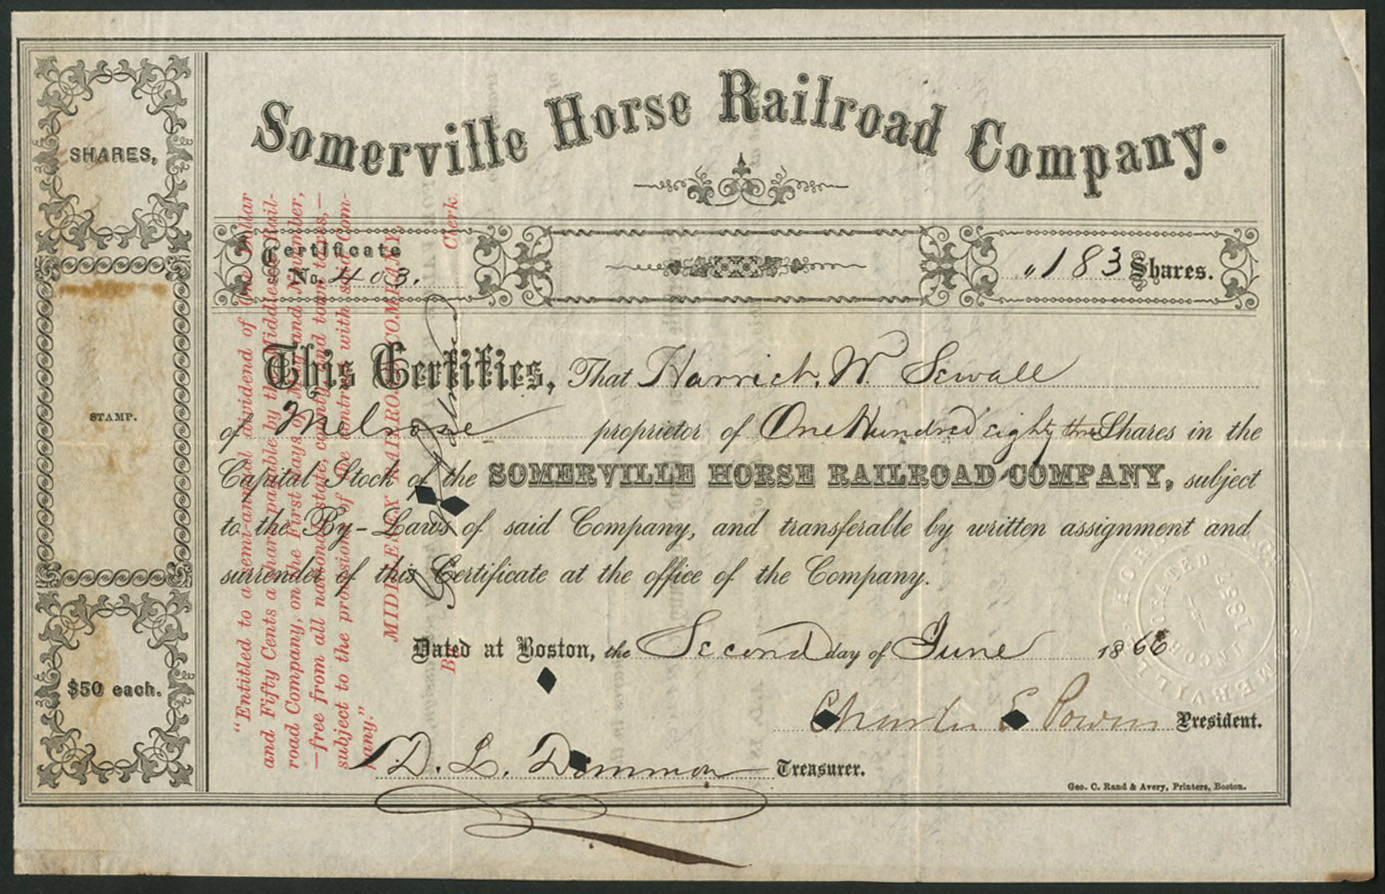 Somerville Horse Railroad Company.
SHARES,
STAMP.
$50 each.
Certificate
No. 403.
"183 Shares.
This Certifies, That Harriet. W. Sewall
of Melrose proprietor of One Hundred eighty three Shares in the
Capital Stock of the SOMERVILLE HORSE RAILROAD COMPANY, subject
to the By-Laws of said Company, and transferable by written assignment and
surrender of this Certificate at the office of the Company.
Dated at Boston, the Second day of June 1866
Charles E Powers President.
D. L. Demmon Treasurer.
Geo. C. Rand & Avery, Printers, Boston.
"Entitled to a semi-annual dividend of One Dollar
and Fifty Cents a share, payable by the Middlesex Rail-
road Company, on the First days of May and November,
—free from all national, state, county and town taxes,—
subject to the provisions of the contract with said Com-
pany."
MIDDLESEX RAILROAD COMPANY,
By Clerk
SOMERVILLE HORSE
INCORPORATED
1857